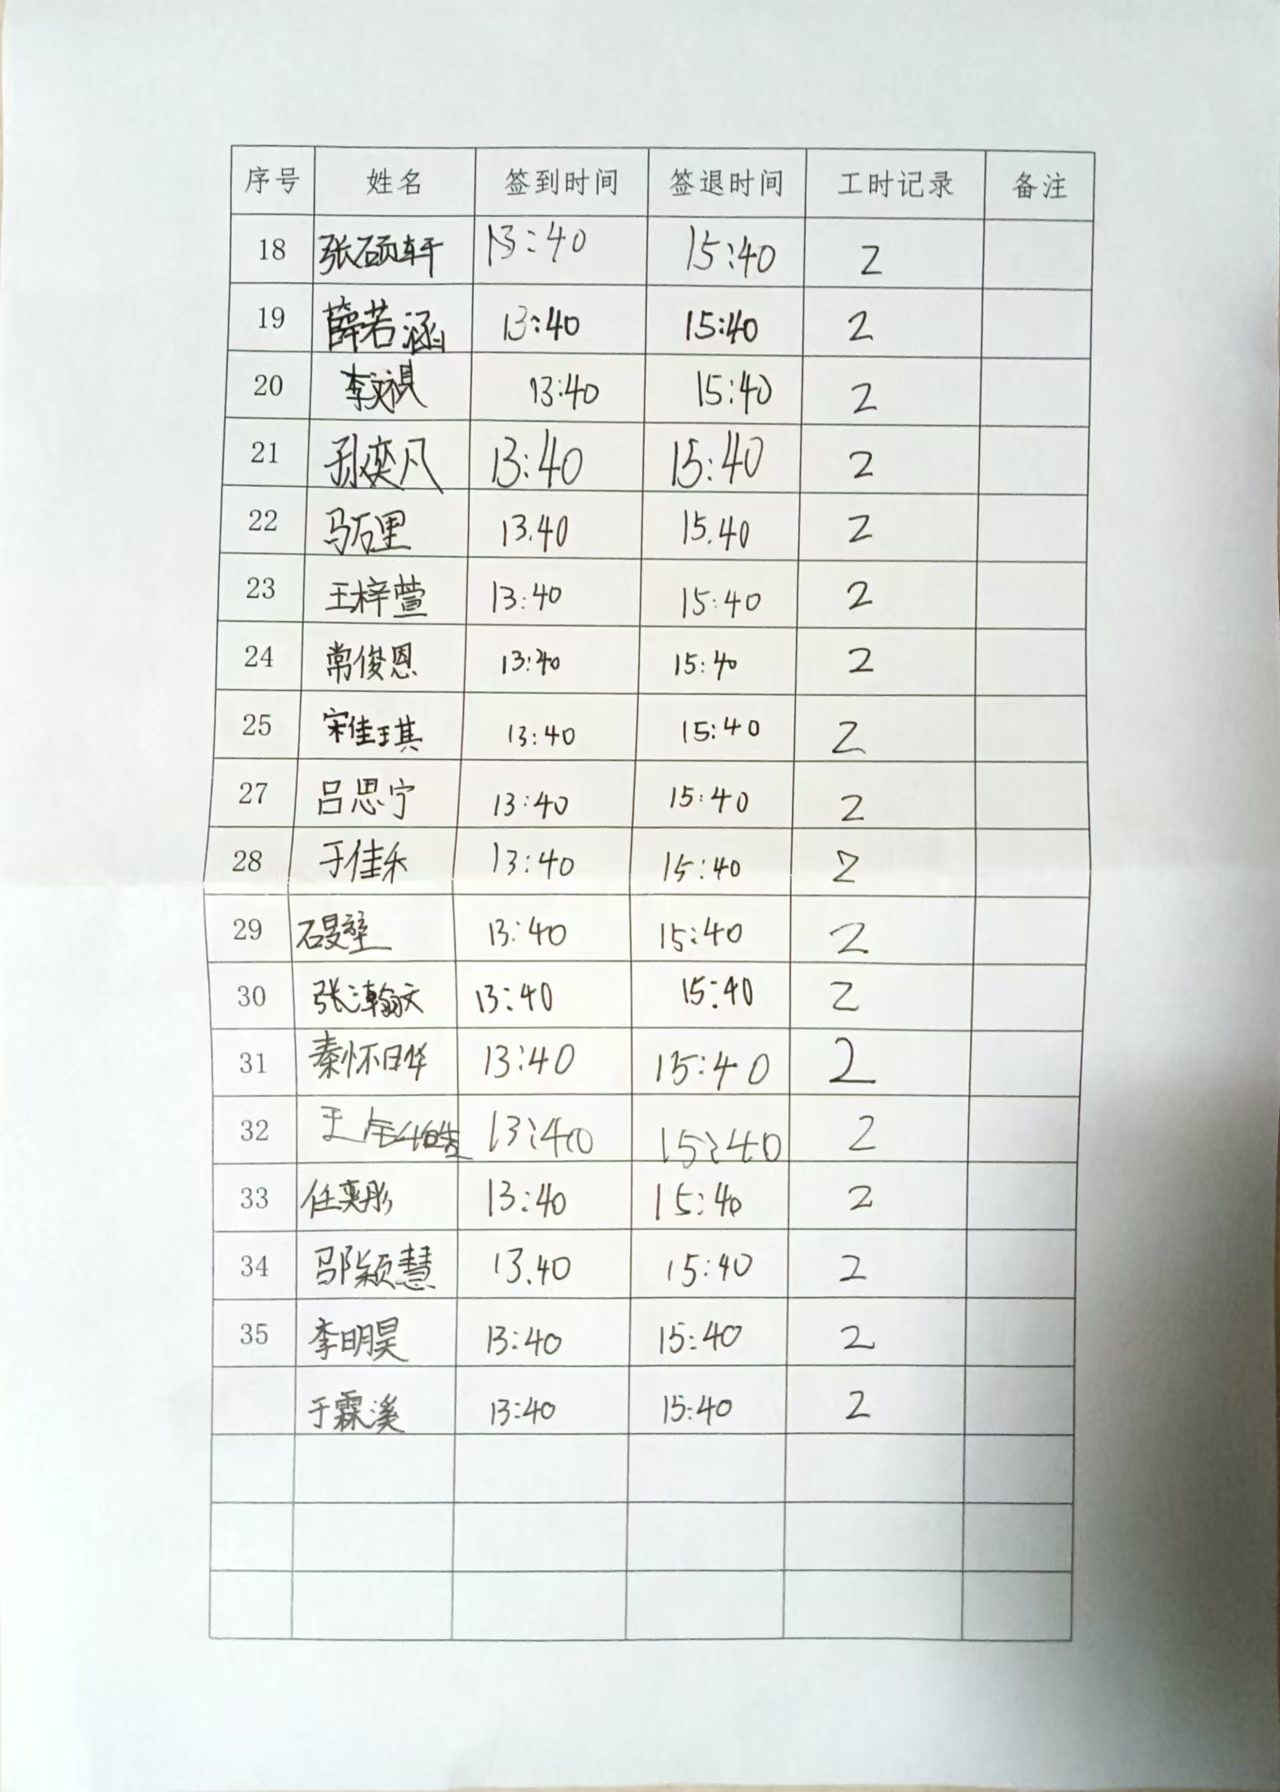 序号 姓名 签到时间 签退时间 工时记录 备注
18 张硕轩 13:40 15:40 2
19 薛若涵 13:40 15:40 2
20 李文祺 13:40 15:40 2
21 孙奕凡 13:40 15:40 2
22 马石里 13.40 15.40 2
23 王梓萱 13:40 15:40 2
24 常俊恩 13:40 15:40 2
25 宋佳琪 13:40 15:40 2
27 吕思宁 13:40 15:40 2
28 于佳乐 13:40 15:40 2
29 13:40 15:40 2
30 张瀚文 13:40 15:40 2
31 秦怀晔 13:40 15:40 2
32 13:40 15:40 2
33 任奕彤 13:40 15:40 2
34 邵颖慧 13.40 15:40 2
35 李明昊 13:40 15:40 2
于霖溪 13:40 15:40 2